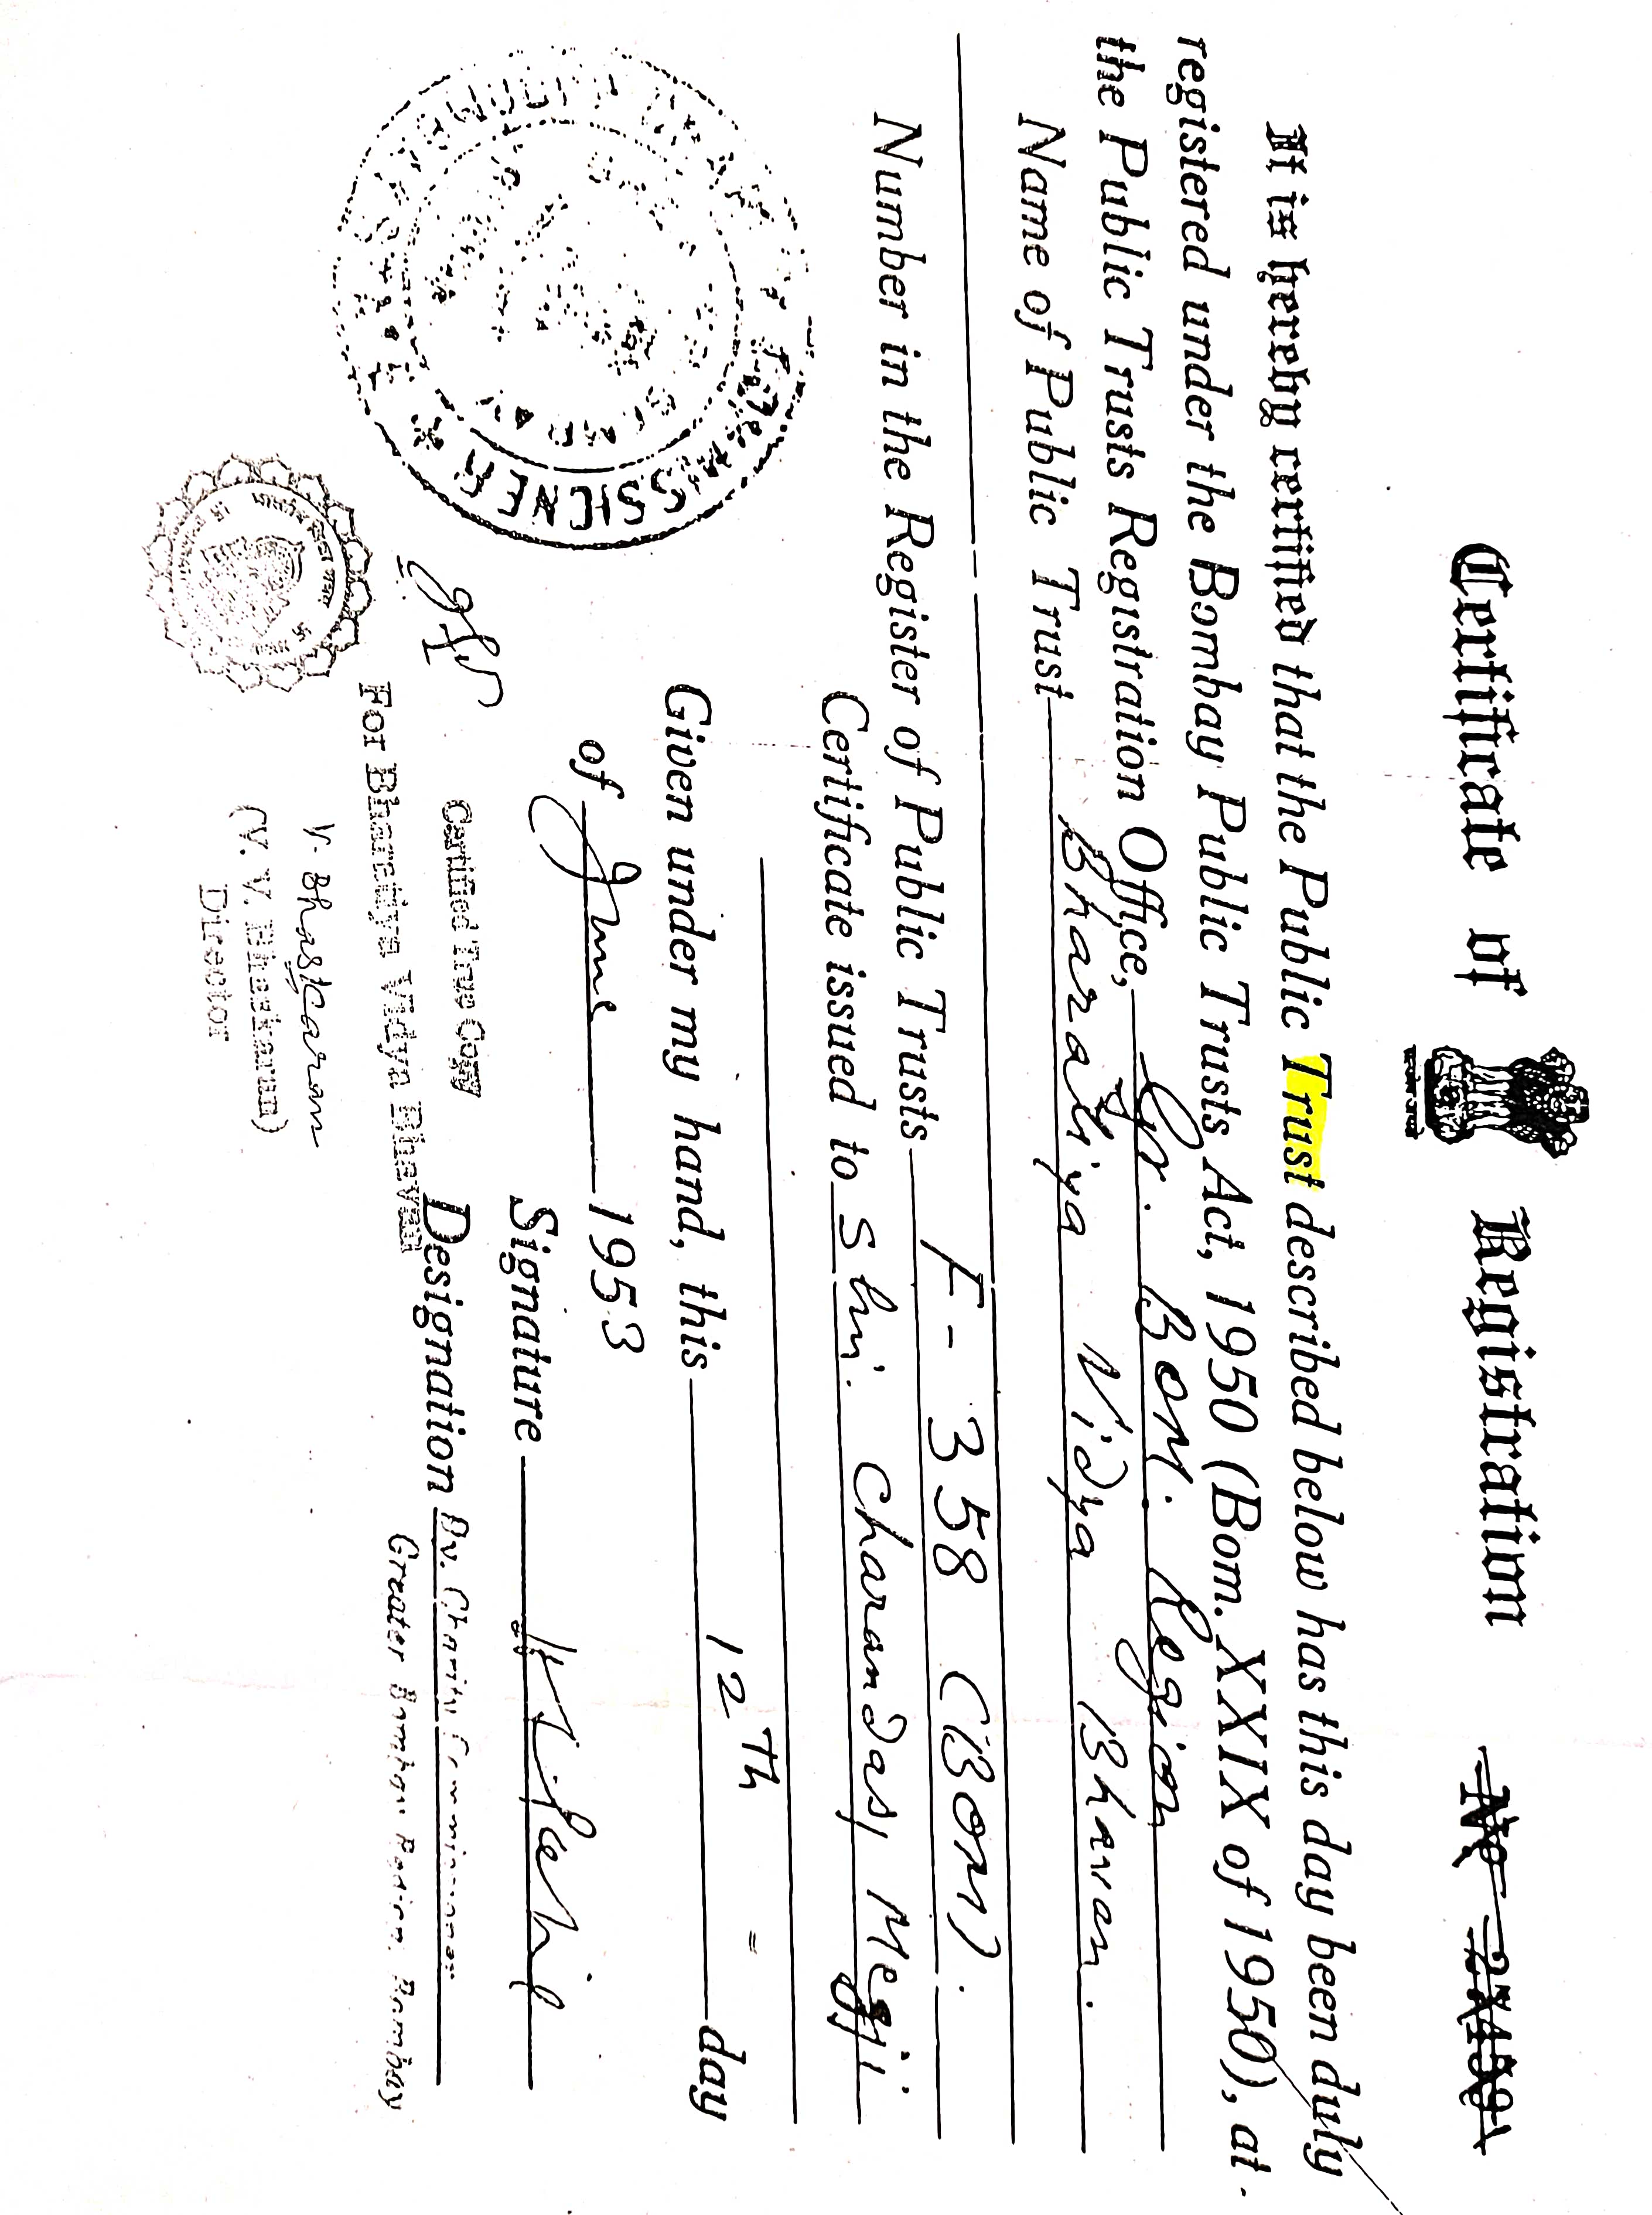 Certificate of Registration
It is hereby certified that the Public Trust described below has this day been duly
registered under the Bombay Public Trusts Act, 1950 (Bom. XXIX of 1950), at
the Public Trusts Registration Office, Gr. Bom. Region
Name of Public Trust Bharatiya Vidya Bhavan.
Number in the Register of Public Trusts F-358 (Bom).
Certificate issued to Shri. Charandas Megji
Given under my hand, this 12Th day
of June 1953
Signature
Designation Dy. Charity Commissioner
Greater Bombay Region, Bombay
Certified True Copy
For Bharatiya Vidya Bhavan
V. Bhaskaram
(V. V. Bhaskaram)
Director